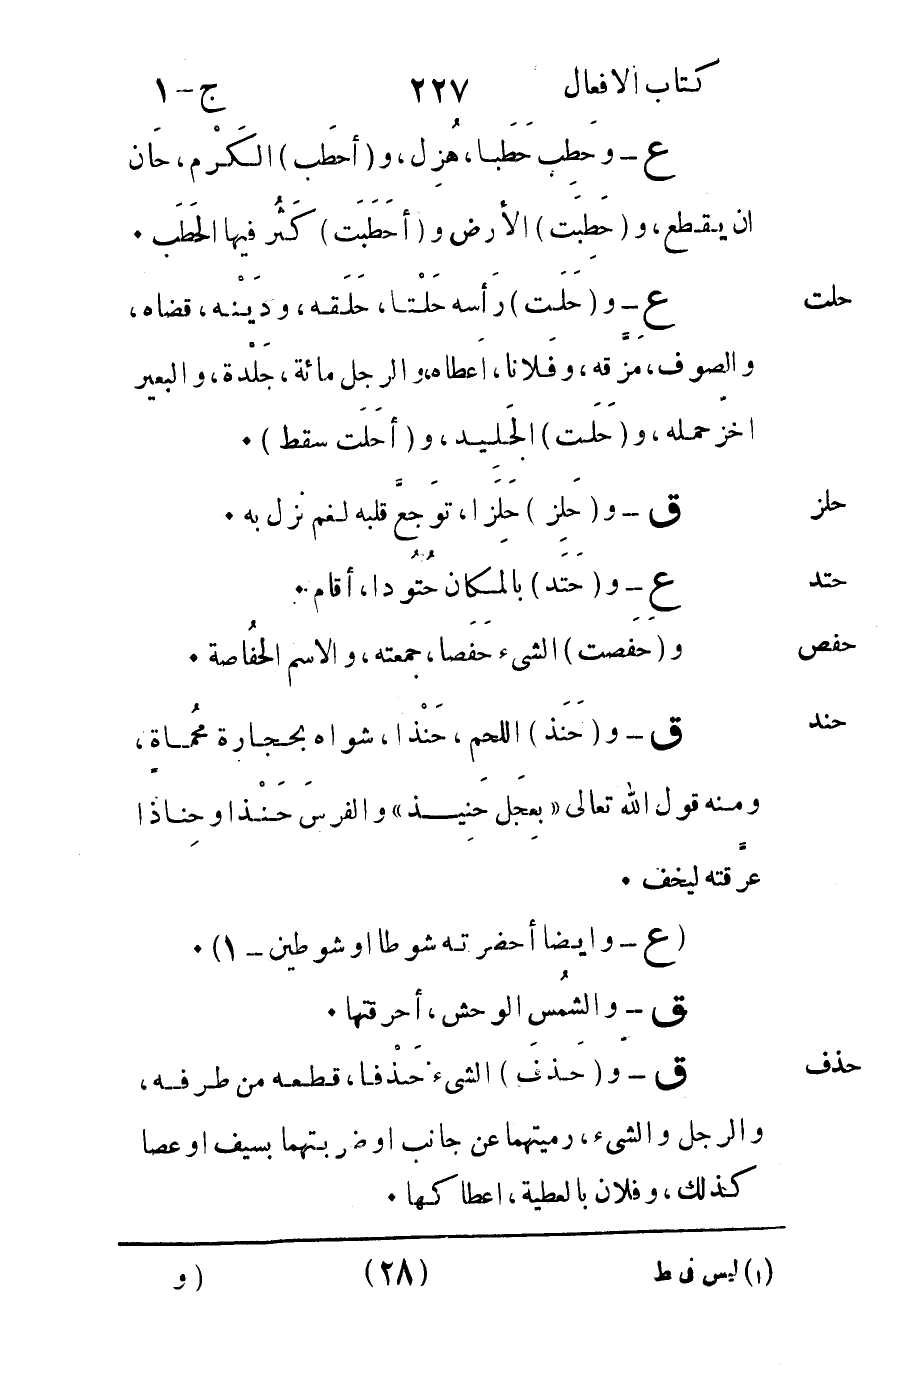 كتاب الافعال ٢٢٧ ج – ١
ع – و حَطِب حَطَبا، هُزِل، و (أحطَب) الكَرْم، حَان
ان يقطع، و (حَطِبَت) الأرض و (أحَطَبَت) كَثُر فيها الحَطَب ٠
حلت
ع – و (حَلَت) رَأسه حَلْتا، حَلَقه، و دَيْنه، قضاه،
و الصوف، مَزَّقه، و فَلانا، اَعطاه، و الرجل مائة، جَلْدة، و البعير
اخز حمله، و (حَلَت) الجَليد، و (أحَلَت سقط) ٠
حلز
ق – و (حَلِز) حَلَزا، توَجعَّ قلبه لغم نزل به ٠
حتد
ع – و (حَتَد) بالمكان حُتُودا، أقام ٠
حفص
و (حَفَصت) الشىء حَفَصا، جمعته، و الاسم الحُفاصة ٠
حند
ق – و (حَنَذ) اللحم، حَنْذا، شواه بحجارة مُحماةٍ،
و منه قول الله تعالى «بِعَجل حَنِيــذ» و الفرسَ حَنْذا و حِناذا
عرَّقته ليخف ٠
(ع – و ايضا أحضرته شوطا او شوطين – ١) ٠
ق – و الشمُس الوحش، أحرقتها ٠
حذف
ق – و (حَذفَ) الشىء حَذْفا، قطعه من طرفه،
و الرجل و الشىء، رميتهما عن جانب او ضربتهما بسيف او عصا
كذلك، و فلان بالعطية، اعطا كها ٠
(١) ليس فى ط (٢٨) (و